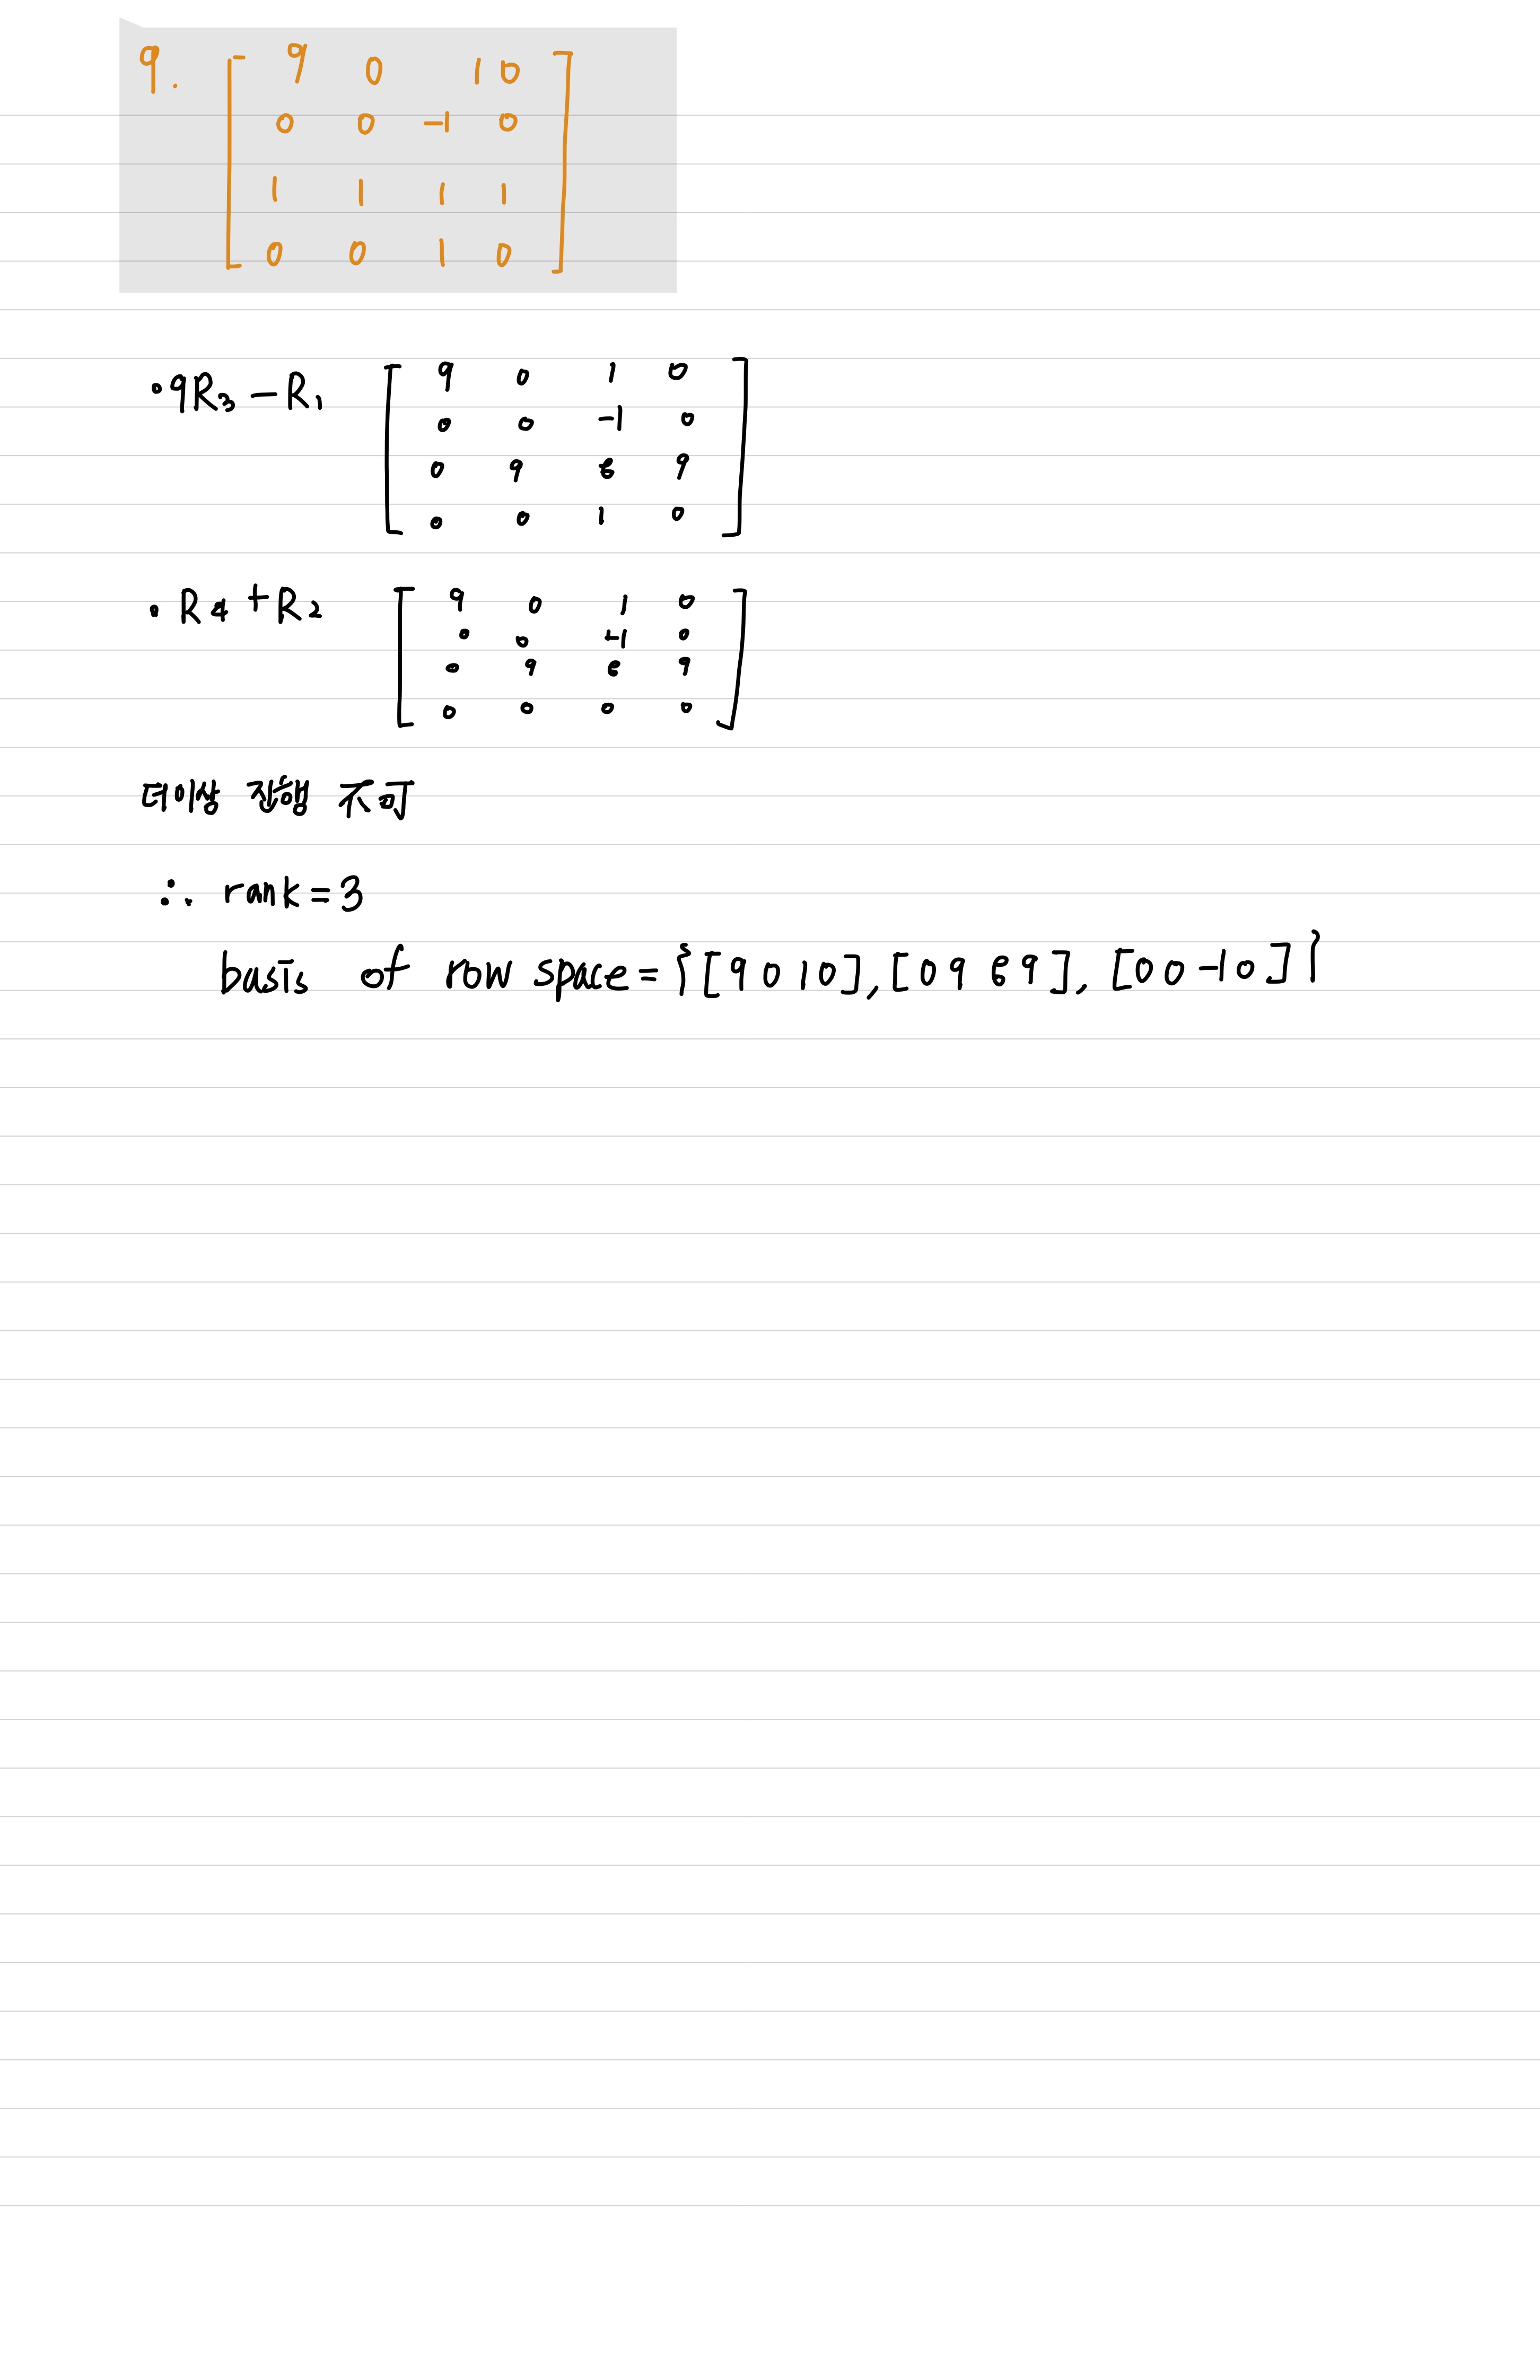 9. [ 9 0 1 0
0 0 -1 0
1 1 1 1
0 0 1 0 ]
• 9R₃ - R₁ [ 9 0 1 0
0 0 -1 0
0 9 8 9
0 0 1 0 ]
• R₄ + R₂ [ 9 0 1 0
0 0 -1 0
0 9 8 9
0 0 0 0 ]
더이상 진행 不可
∴ rank = 3
basis of row space = { [9 0 1 0], [0 9 8 9], [0 0 -1 0] }